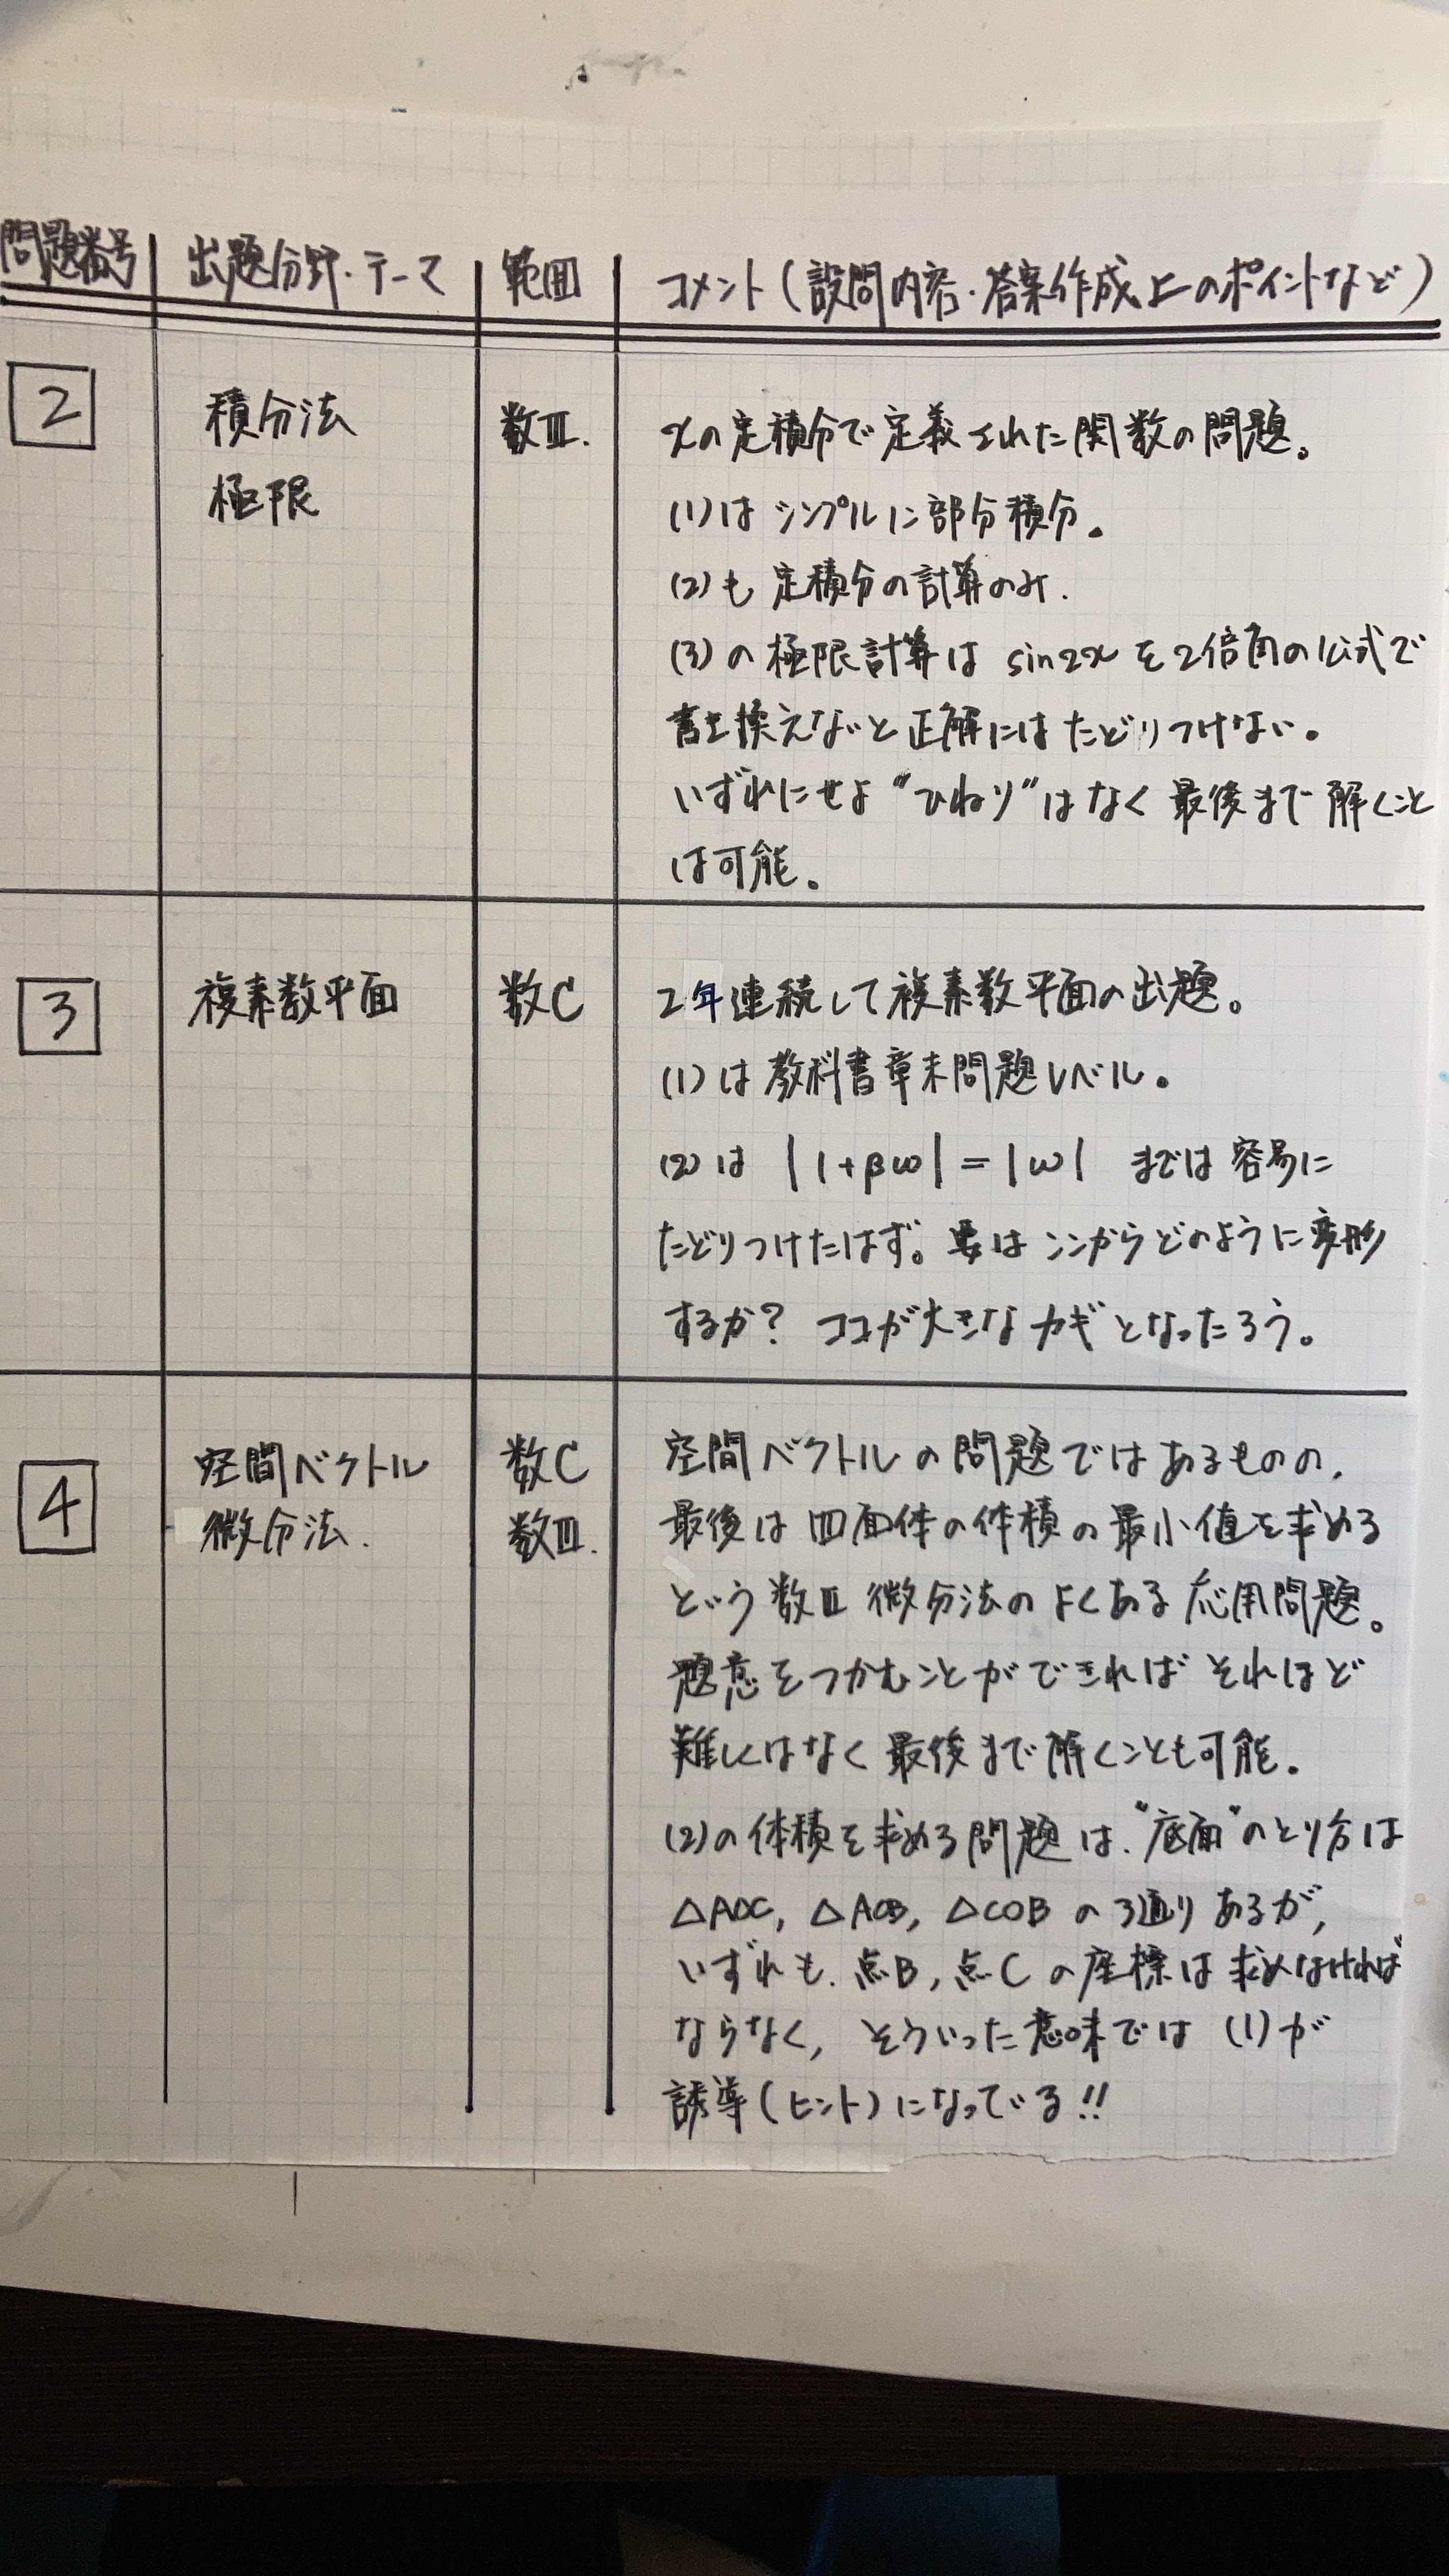 問題番号 出題分野・テーマ 範囲 コメント(設問内容・答案作成上のポイントなど)
2 積分法 数Ⅲ. xの定積分で定義された関数の問題。
極限 (1)はシンプルに部分積分。
(2)も定積分の計算のみ.
(3)の極限計算は sin2x を2倍角の公式で
書き換えないと正解にはたどりつけない。
いずれにせよ“ひねり”はなく最後まで解くこと
は可能。
3 複素数平面 数C 2年連続して複素数平面の出題。
(1)は教科書章末問題レベル。
(2)は |1+βω|=|ω| までは容易に
たどりつけたはず。要はココからどのように変形
するか? ココが大きなカギとなったろう。
4 空間ベクトル 数C 空間ベクトルの問題ではあるものの,
微分法. 数Ⅲ. 最後は四面体の体積の最小値を求める
という数Ⅲ微分法のよくある応用問題。
題意をつかむことができればそれほど
難しくはなく最後まで解くことも可能。
(2)の体積を求める問題は.“底面”のとり方は
△AOC, △AOB, △COB の3通りあるが,
いずれも.点B,点Cの座標は求めなければ
ならなく, そういった意味では (1)が
誘導(ヒント)になっている!!